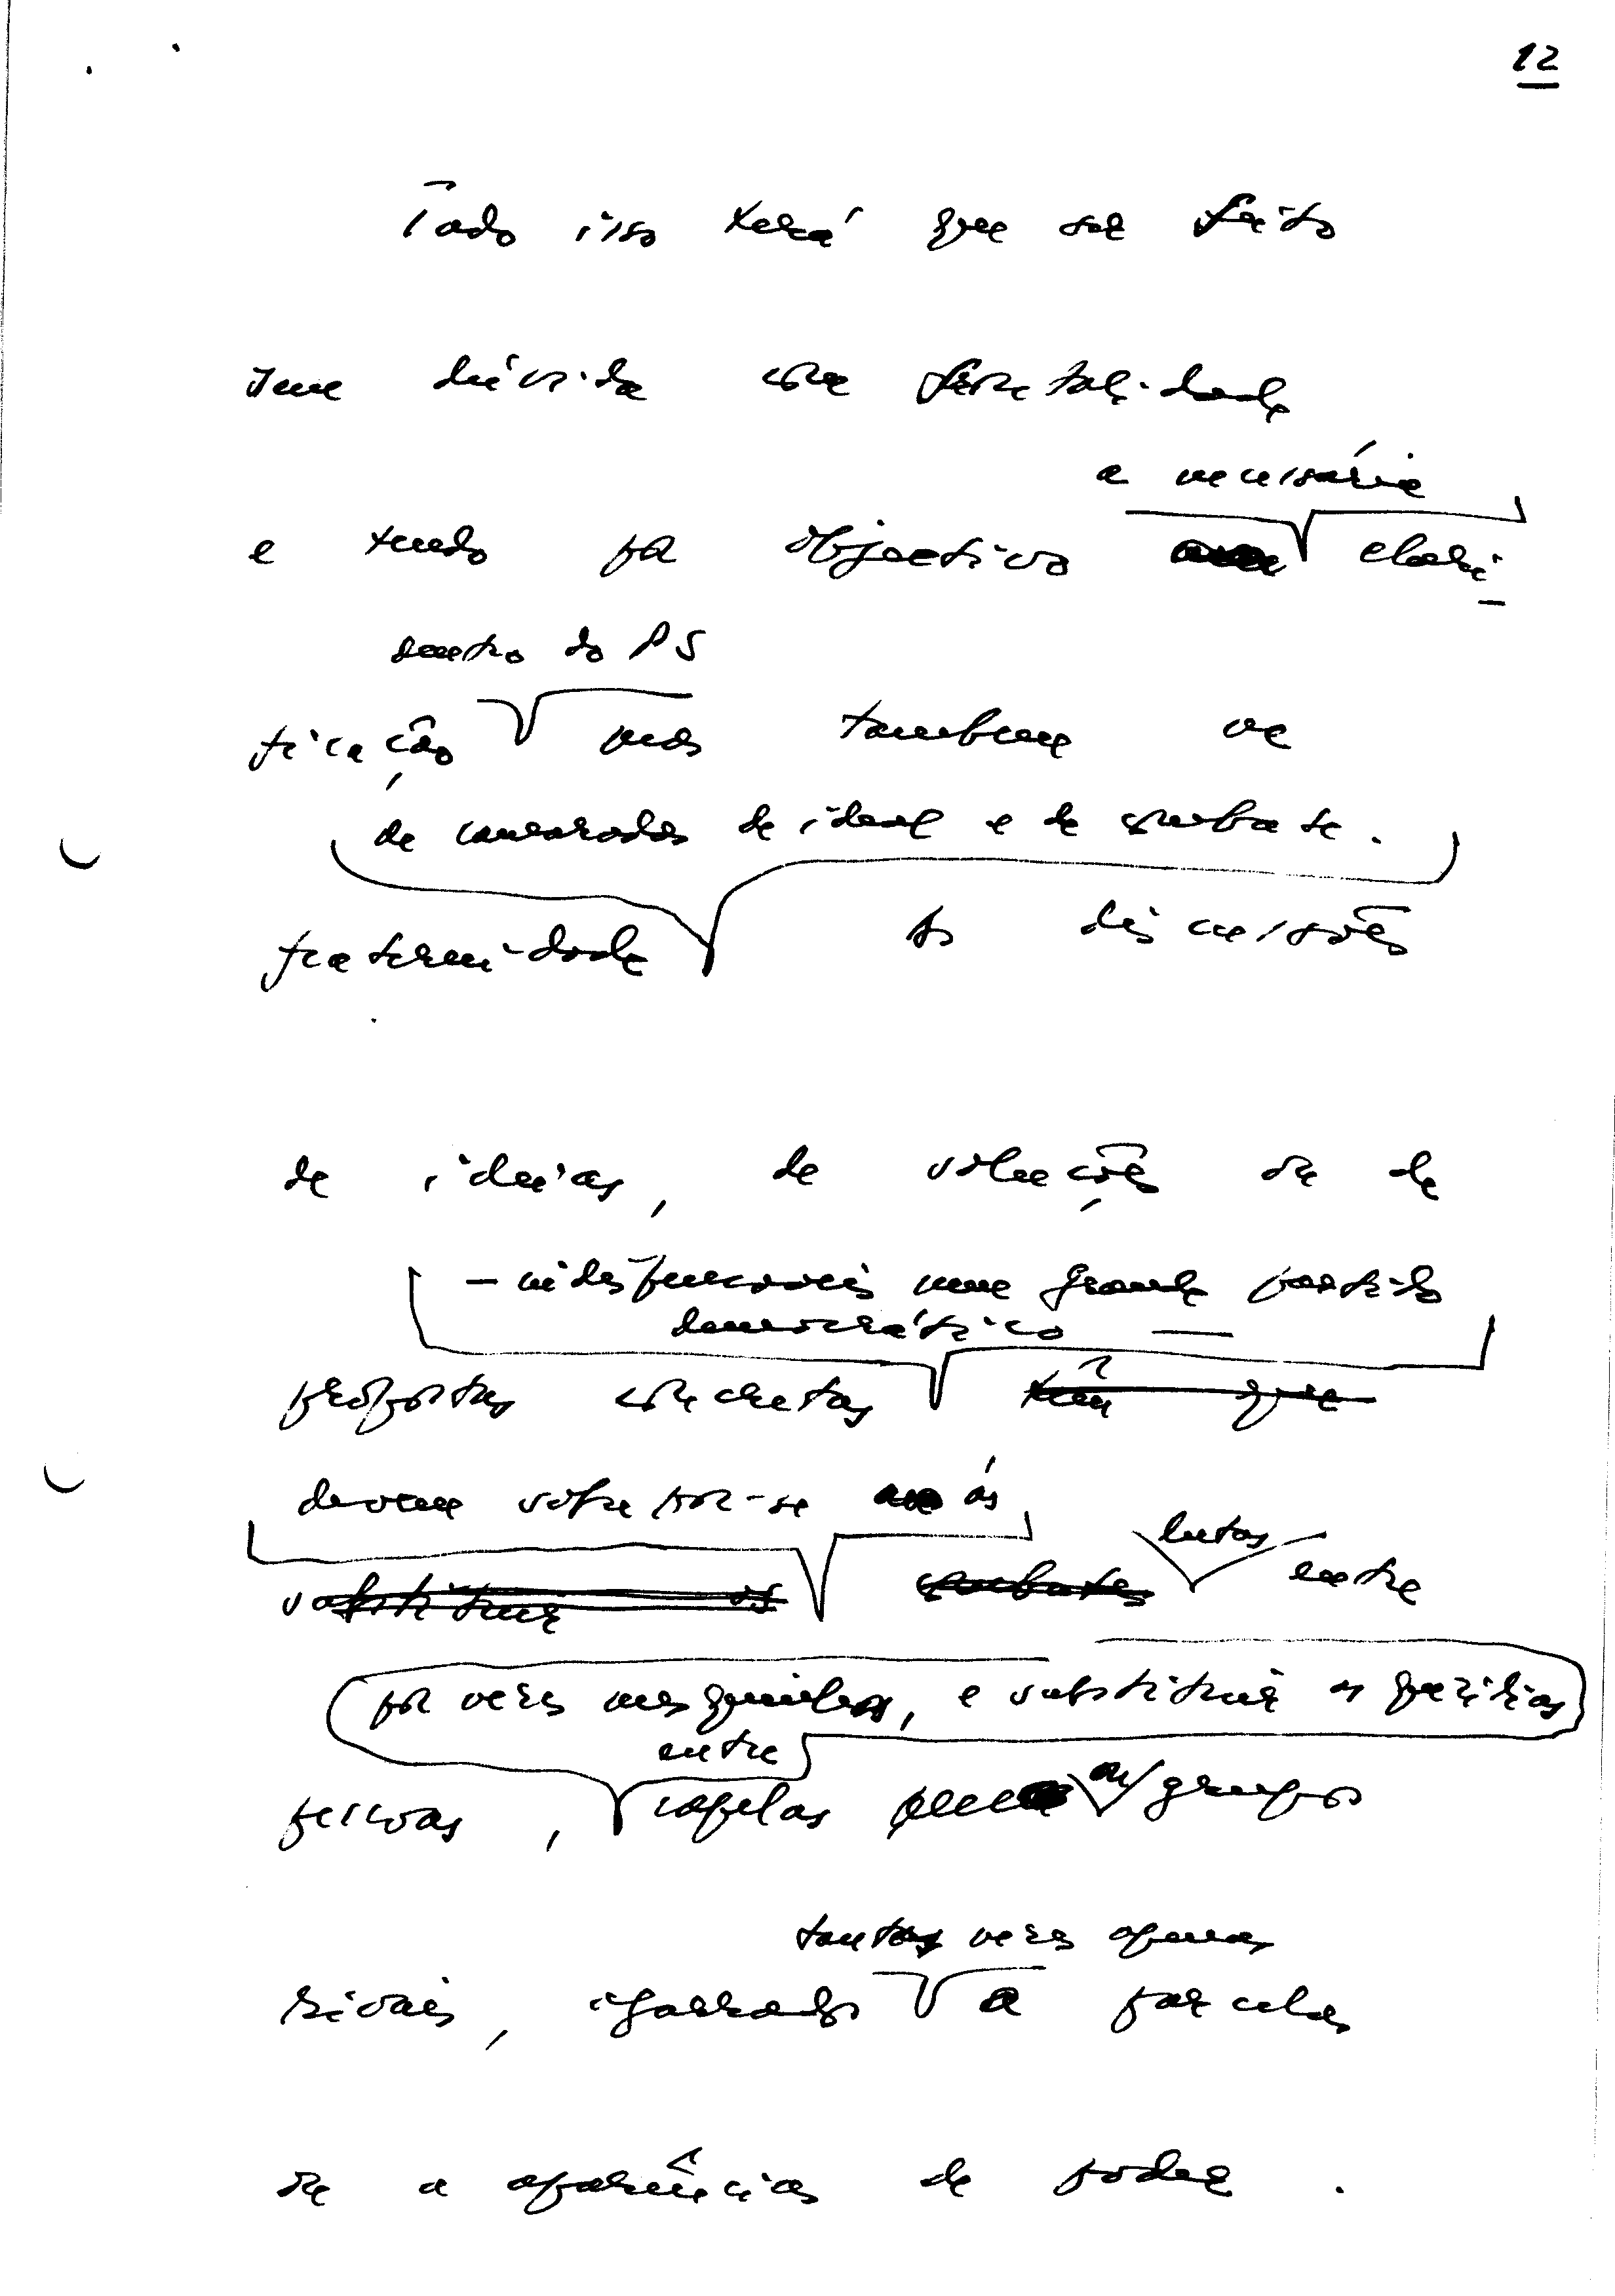 12
Todo isso terá que ser feito
sem dúvida com frontalidade
a necessária
e tendo por objectivo clari-
dentro do PS
ficação mas também na
de camaradas de ideal e de combate.
fraternidade As discussões
de ideias, de soluções ou de
— indispensáveis num grande partido
democrático —
propostas concretas têm que
devem sobrepor-se às
lutas
substituir os combates entre
por vezes mesquinhas, e substituir as quezílias
entre
pessoas, capelas ou grupos
tantas vezes apenas
rivais, agarrados a parcelas
ou a aparências de poder.